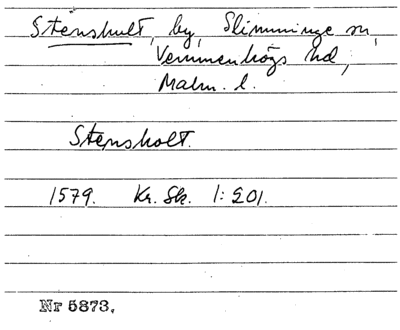 Stenshult, by, Slimminge sn,
Vemmenhögs hd,
Malm. l.
Stensholt.
1579. Kr. Sk. 1:201.
Nr 5873.